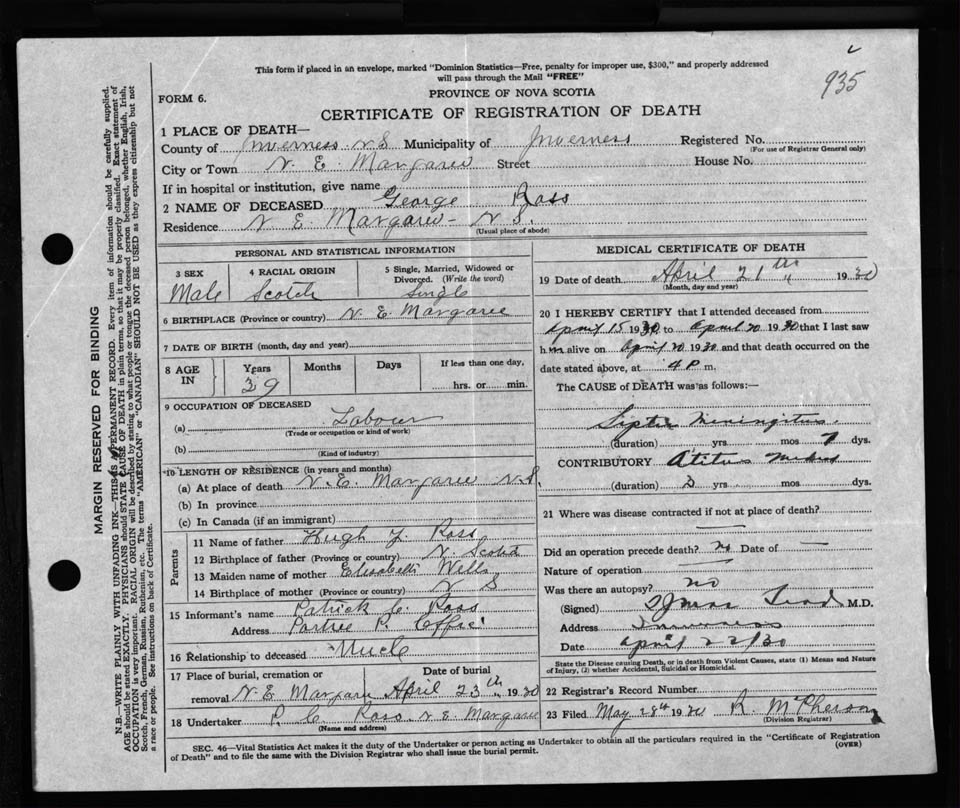 935
This form if placed in an envelope, marked "Dominion Statistics—Free, penalty for improper use, $300," and properly addressed
will pass through the Mail "FREE"
PROVINCE OF NOVA SCOTIA
FORM 6.
CERTIFICATE OF REGISTRATION OF DEATH
1 PLACE OF DEATH—
County of Inverness N S Municipality of Inverness Registered No.
(For use of Registrar General only)
City or Town N. E. Margaree Street House No.
If in hospital or institution, give name
2 NAME OF DECEASED George Ross
Residence N. E. Margaree - N S.
(Usual place of abode)
PERSONAL AND STATISTICAL INFORMATION
3 SEX 4 RACIAL ORIGIN 5 Single, Married, Widowed or
Divorced. (Write the word)
Male Scotch Single
6 BIRTHPLACE (Province or country) N. E. Margaree
7 DATE OF BIRTH (month, day and year)
8 AGE IN Years Months Days If less than one day,
39 hrs. or min.
9 OCCUPATION OF DECEASED
(a) Labour
(Trade or occupation or kind of work)
(b)
(Kind of industry)
10 LENGTH OF RESIDENCE (in years and months)
(a) At place of death N. E. Margaree N. S.
(b) In province
(c) In Canada (if an immigrant)
Parents
11 Name of father Hugh Ross
12 Birthplace of father (Province or country) N. Scotia
13 Maiden name of mother Elisabeth
14 Birthplace of mother (Province or country) N S
15 Informant's name Patrick C. Ross
Address P. Office
16 Relationship to deceased Uncle
17 Place of burial, cremation or Date of burial
removal N. E. Margaree April 23th 1930
18 Undertaker P. C. Ross N. E. Margaree
(Name and address)
MEDICAL CERTIFICATE OF DEATH
19 Date of death April 21th 1930
(Month, day and year)
20 I HEREBY CERTIFY that I attended deceased from
April 15 1930 to April 20 1930 that I last saw
him alive on April 20 1930 and that death occurred on the
date stated above, at 4 P m.
The CAUSE of DEATH was as follows:—
Septic Meningitus.
(duration) yrs mos 7 dys.
CONTRIBUTORY
(duration) yrs mos dys.
21 Where was disease contracted if not at place of death?
Did an operation precede death? no Date of —
Nature of operation
Was there an autopsy? no
(Signed) M.D.
Address Inverness
Date April 22/30
State the Disease causing Death, or in death from Violent Causes, state (1) Means and Nature
of Injury, (2) whether Accidental, Suicidal or Homicidal.
22 Registrar's Record Number
23 Filed May 28th 1930 R. McPherson
(Division Registrar)
SEC. 46—Vital Statistics Act makes it the duty of the Undertaker or person acting as Undertaker to obtain all the particulars required in the "Certificate of Registration
of Death" and to file the same with the Division Registrar who shall issue the burial permit.
(OVER)
MARGIN RESERVED FOR BINDING
N.B.—WRITE PLAINLY WITH UNFADING INK—THIS IS A PERMANENT RECORD. Every item of information should be carefully supplied.
AGE should be stated EXACTLY. PHYSICIANS should STATE CAUSE OF DEATH in plain terms, so that it may be properly classified. Exact statement of
OCCUPATION is very important. RACIAL ORIGIN will be described by stating to what people or tongue the deceased person belonged, whether English, Irish,
Scotch, French, German, Russian, Ruthenian, etc. The terms "AMERICAN" or "CANADIAN" SHOULD NOT BE USED as they express citizenship but not
a race or people. See instructions on back of Certificate.